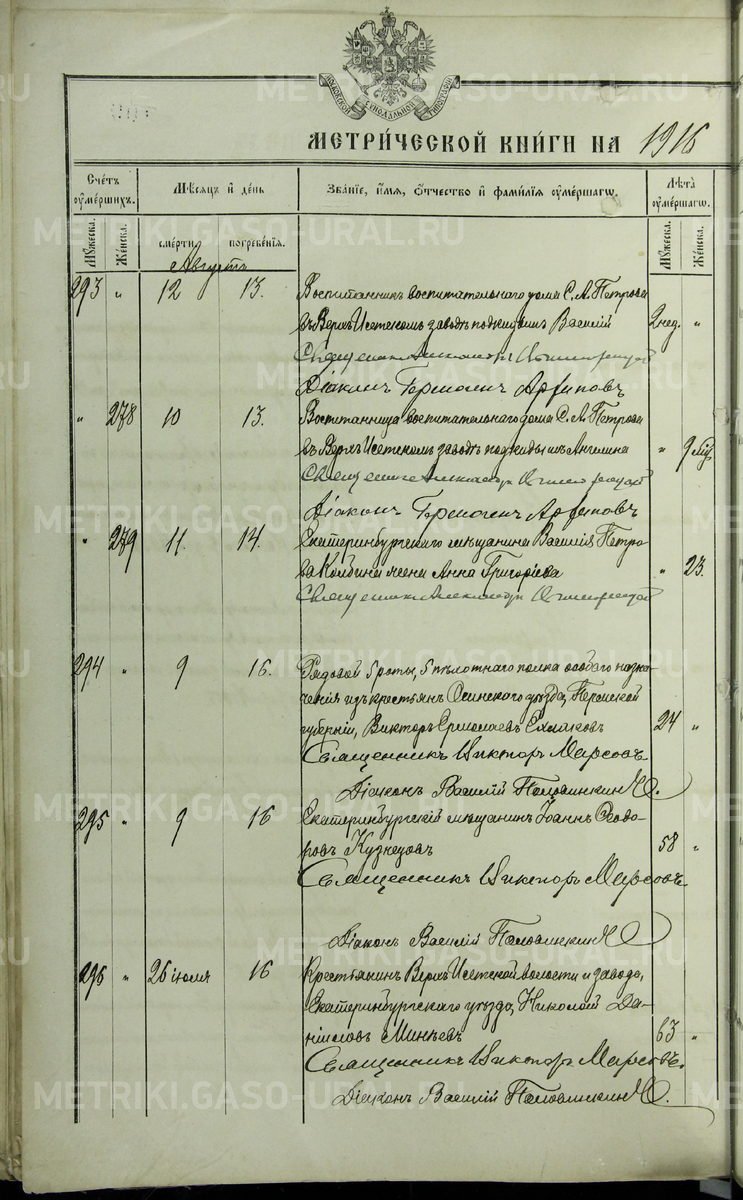 МОСКОВСКОЙ СѴНОДАЛЬНОЙ ТИПОГРАФІИ
МЕТРИ́ЧЕСКОЙ КНИ́ГИ НА 1916
Сче́тъ ᲂу҆ме́ршихъ.
Мѣ́сяцъ и҆ де́нь
Зва́нїе, и҆́мя, ѻ҆́тчество и҆ фами́лїя ᲂу҆ме́ршагѡ.
Лѣ́та ᲂу҆ме́ршагѡ.
Мꙋ́жеска.
Же́нска.
сме́рти.
погребе́нїя.
Мꙋ́жеска.
Же́нска.
Августъ
293 " 12 13. Воспитанникъ воспитательнаго дома С. А. Петрова
въ Верхъ Исетскомъ заводѣ подкидышъ Василій 2 нед. "
Священникъ Александръ
Діаконъ Гермогенъ Арфиповъ
" 278 10 13. Воспитанница воспитательнаго дома С. А. Петрова
въ Верхъ Исетскомъ заводѣ подкидышъ Ангелина " 9 мѣс.
Священникъ Александръ
Діаконъ Гермогенъ Арфиповъ
" 279 11. 14. Екатеринбургскаго мѣщанина Василія Петро
ва Колбина жена Анна Григоріева " 23.
Священникъ Александръ
294 " 9 16. Рядовой 5 роты, 5 пѣхотнаго полка особаго назна-
ченія изъ крестьянъ Осинскаго уѣзда, Пермской
губерніи, Викторъ Ермолаевъ 24 "
Священникъ Викторъ Марсовъ
Діаконъ Василій Половинкинъ.
295 " 9 16 Екатеринбургскій мѣщанинъ Іоаннъ Ѳеодо-
ровъ Кузнецовъ 58 "
Священникъ Викторъ Марсовъ.
Діаконъ Василій Половинкинъ
296 " 26 іюля 16 Крестьянинъ Верхъ Исетской волости и завода,
Екатеринбургскаго уѣзда, Николай Да-
ніиловъ Минѣевъ 63 "
Священникъ Викторъ Марсовъ.
Діаконъ Василій Половинкинъ.
METRIKI.GASO-URAL.RU